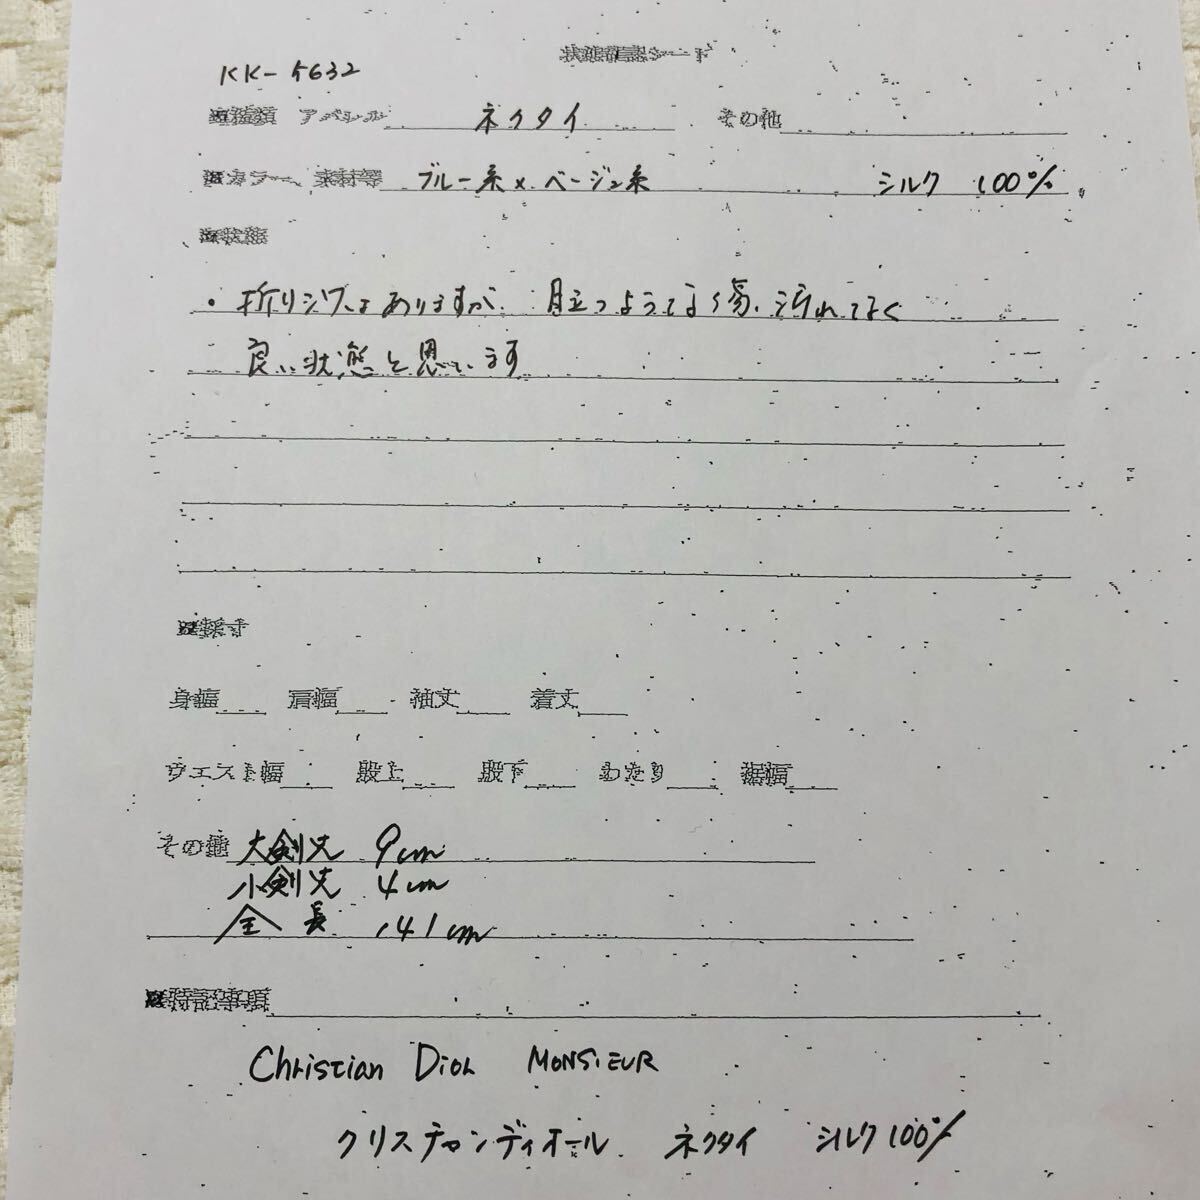 状態確認シート
KK-5632
■種類 アパレル ネクタイ その他
■カラー、素材等 ブルー系×ベージュ系 シルク 100%
■状態
・折りジワはありますが、目立つような傷、汚れはなく
良い状態と思います
■採寸
身幅 肩幅 袖丈 着丈
ウエスト幅 股上 股下 わたり 裾幅
その他 大剣先 9cm
小剣先 4cm
全長 141cm
■特記事項
Christian Dior MONSIEUR
クリスチャンディオール ネクタイ シルク100%